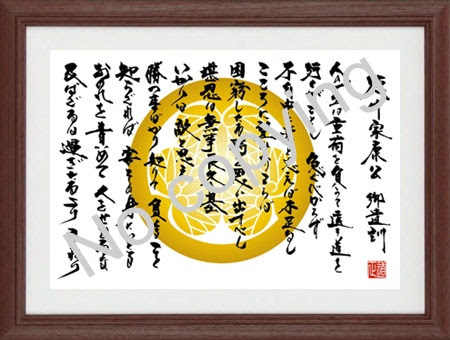 徳川家康公 御遺訓
人の一生は重荷を負うて遠き道を
行くがごとし 急ぐべからず
不自由を常と思へば不足なし
こころに望みおこらば
困窮したる時を思ひ出すべし
堪忍は無事長久の基
いかりは敵と思へ
勝つ事ばかり知りて 負くること
知らざれば 害その身にいたる
おのれを責めて 人をせむるな
及ばざるは過ぎたるより まされり
No copying